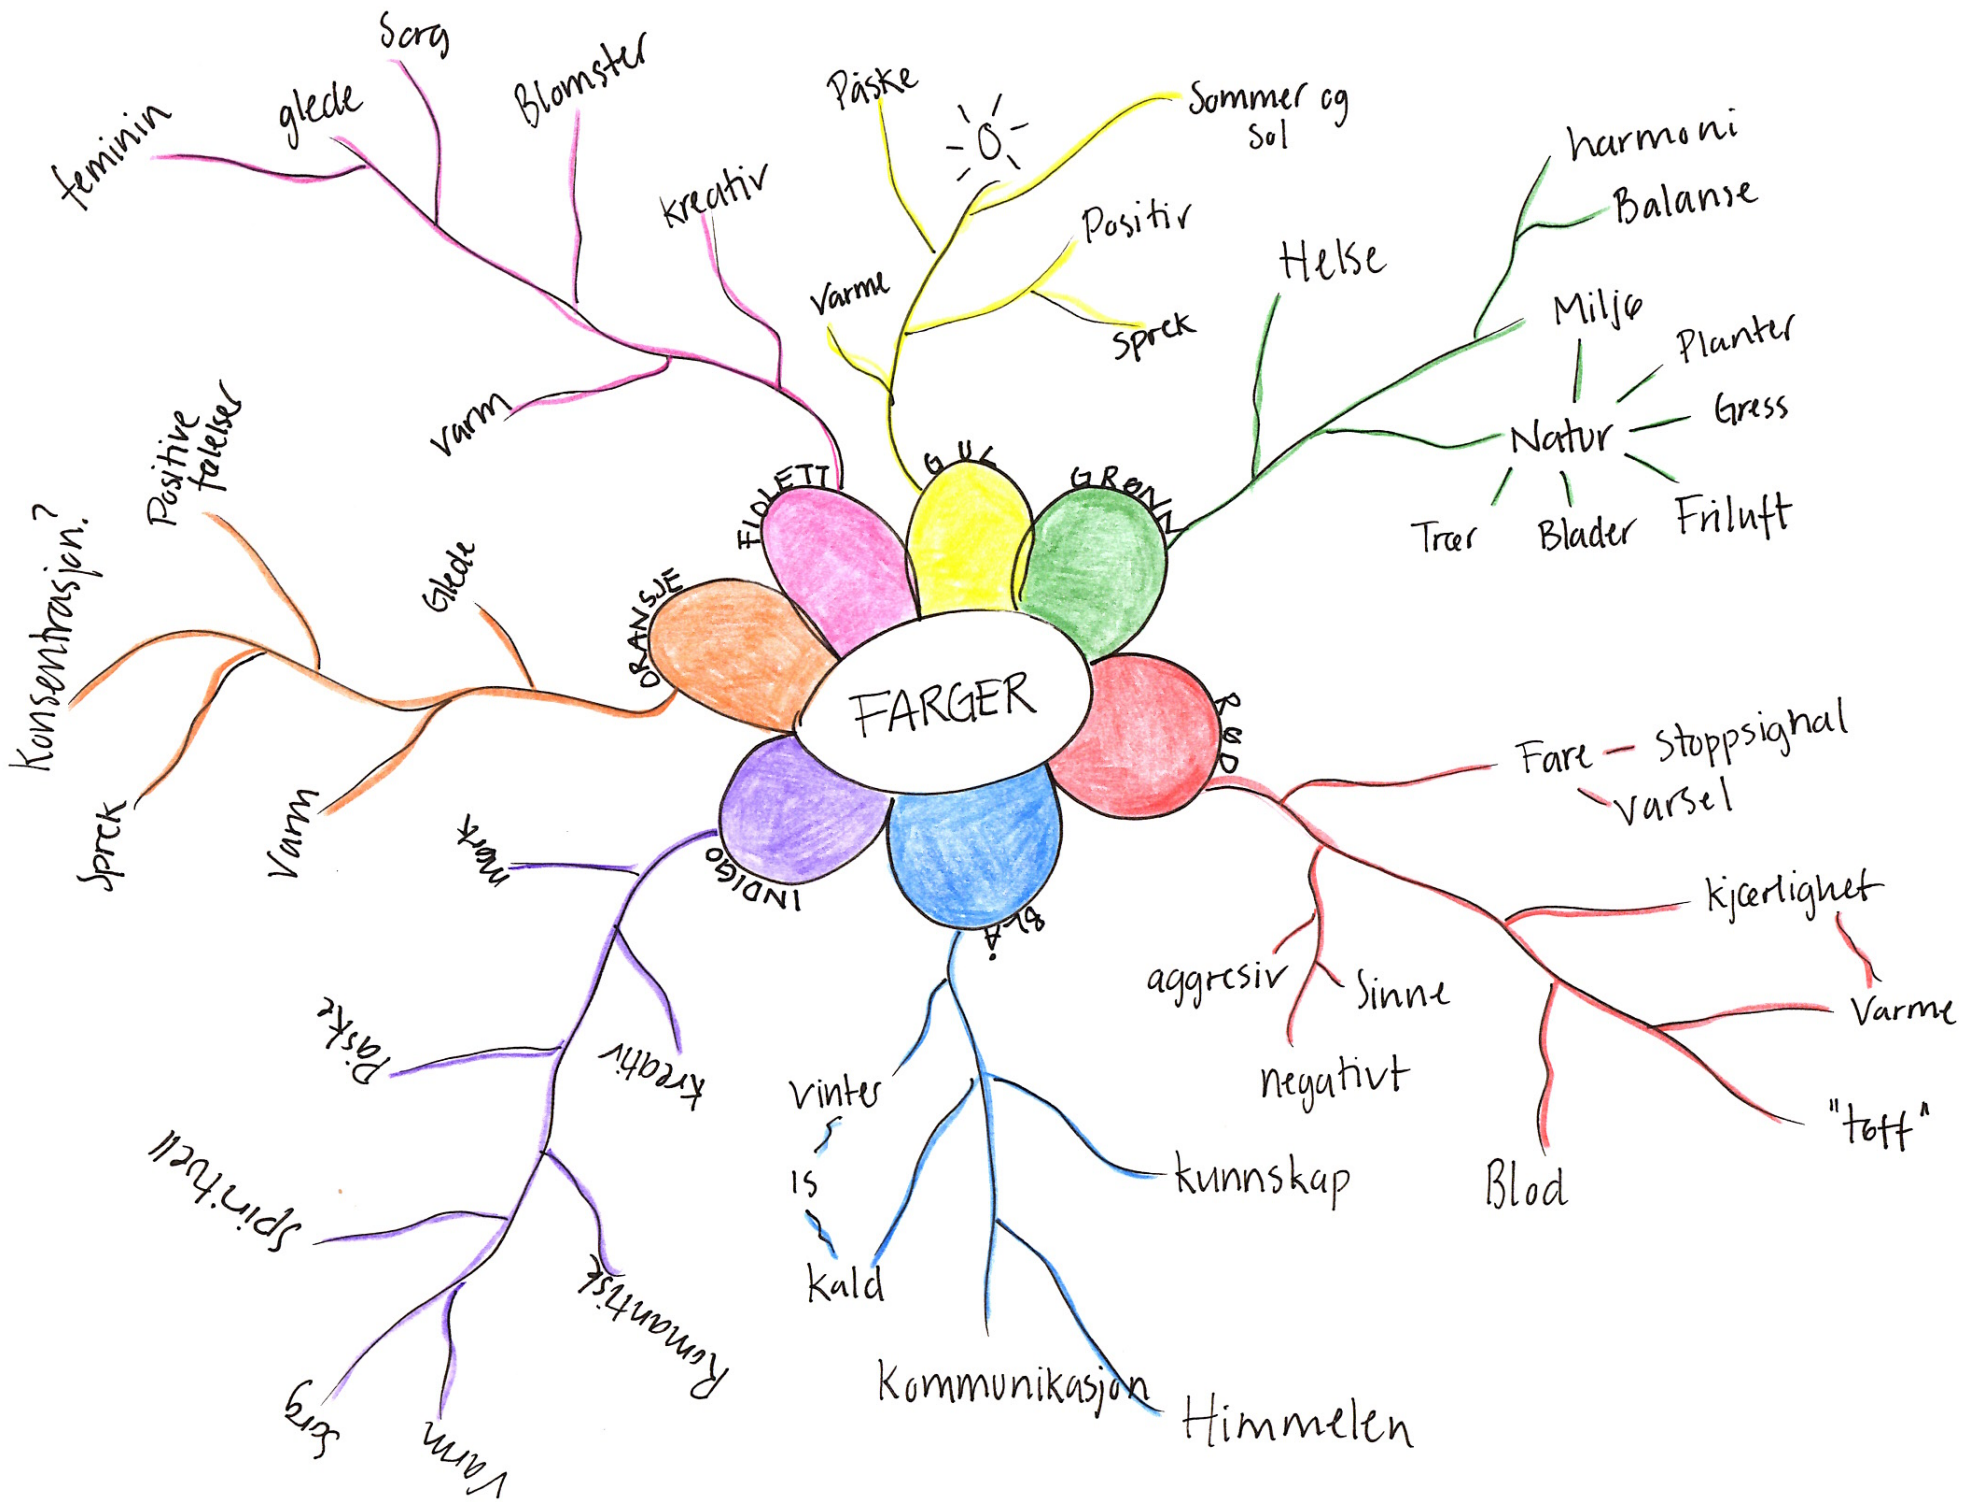 FARGER
FIOLETT
feminin
glede
Sorg
Blomster
kreativ
varm
GUL
Påske
Sommer og
Sol
Positiv
Sprek
varme
GRØNN
Helse
harmoni
Balanse
Miljø
Natur
Planter
Gress
Friluft
Blader
Trær
RØD
Fare
Stoppsignal
varsel
kjærlighet
Varme
"tøff"
Blod
aggresiv
Sinne
negativt
BLÅ
vinter
is
kald
kunnskap
Kommunikasjon
Himmelen
INDIGO
mørk
kreativ
Påske
Romantisk
Spirituell
Varm
Sorg
ORANSJE
Glede
Positive
følelser
Konsentrasjon?
Sprek
Varm